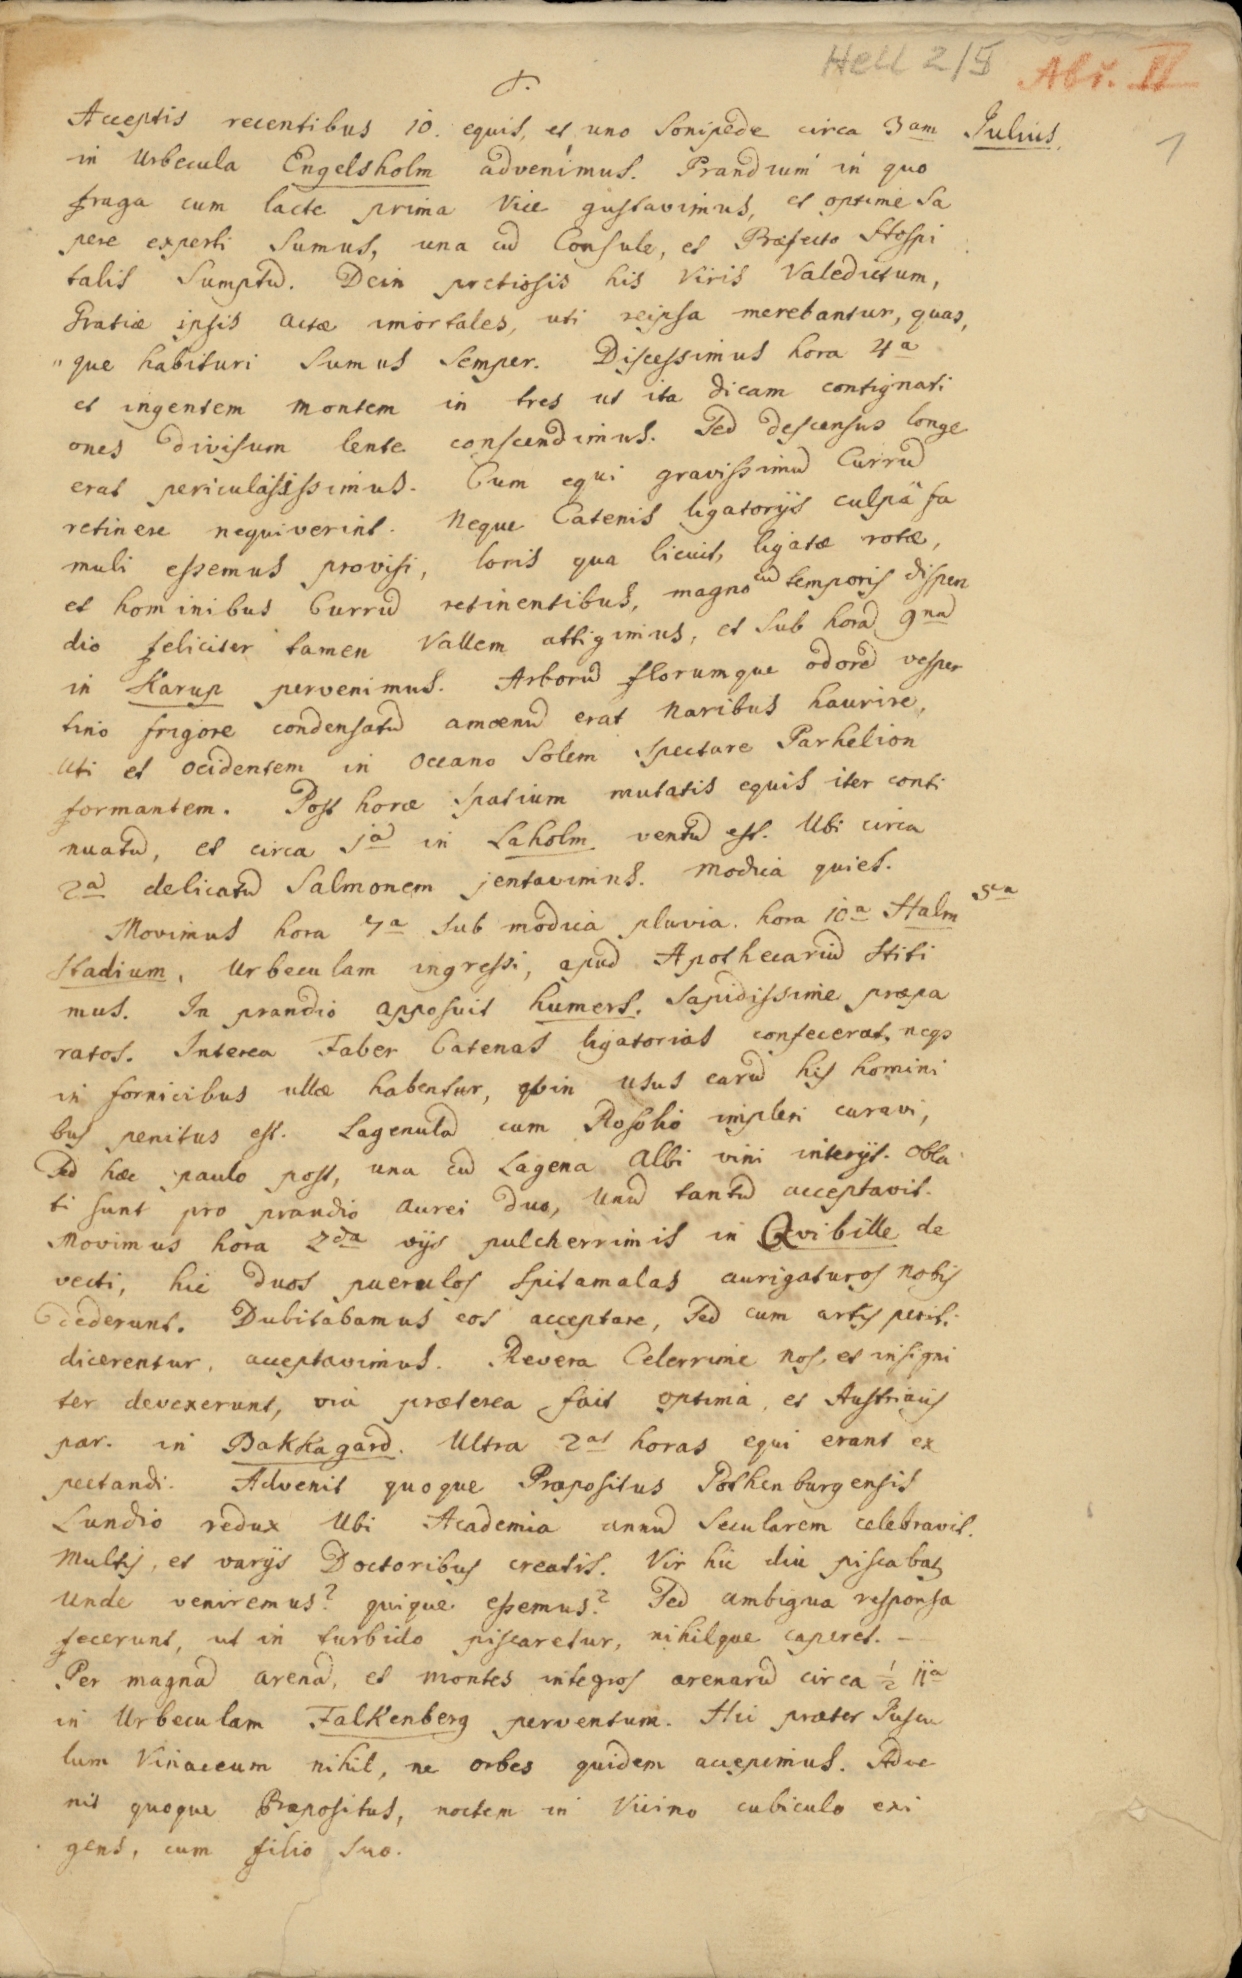 Hell 2/5 Abs. II
1
Acceptis recentibus 10. equis, et uno Sonipede circa 3am Julius.
in Urbecula Engelsholm advenimus. Prandium in quo
fraga cum lacte prima Vice gustavimus, et optime Sa
pere experti Sumus, una cū Consule, et Præfecto Hospi
talis Sumptū. Dein pretiosis his Viris Valedictum,
Gratiæ ipsis actæ imortales, uti reipsa merebantur, quas,
" que habituri Sumus Semper. Discessimus hora 4a
et ingentem montem in tres ut ita dicam contignati
ones divisum lente conscendimus. Sed descensus longe
erat periculosissimus. Cum equi gravissimū Currū
retinere nequiverint. Neque Catenis ligatorijs culpâ fa
muli essemus provisi, loris qua licuit, ligatæ rotæ,
et hominibus Currū retinentibus, magno cū temporis dispen
dio feliciter tamen Vallem attigimus, et Sub horā 9nā
in Karup pervenimus. Arborū florumque odorē vesper
tino frigore condensatū amœnū erat Naribus haurire,
Uti et ocidentem in Oceano Solem Spectare Parhelion
formantem. Post horæ Spatium mutatis equis iter conti
nuatū, et circa 1ā in Laholm ventū est. Ubi circa
2ā delicatū Salmonem jentavimus. Modica quies.
5ta
Movimus hora 7a Sub modica pluvia. hora 10a Halm
Stadium, Urbeculam ingressi, apud Apothecariū Stiti
mus. In prandio apposuit humers. Sapidissime præpa
ratos. Interea Faber Catenas ligatorias confecerat, neqз
in fornicibus ullæ habentur, qvin usus earū his homini
bus penitus est. Lagenulā cum Rosolio impleri curavi,
Sed hæc paulo post, una cū Lagena Albi vini interijt. Obla
ti sunt pro prandio aurei duo, Unū tantū acceptavit.
Movimus hora 2da vijs pulcherrimis in Qvibille de
vecti, hic duos puerulos Spitamalas aurigaturos nobis
dederunt. Dubitabamus eos acceptare, Sed cum artis periti
dicerentur, acceptavimus. Revera Celerrime nos, et insigni
ter devexerunt, via præterea fuit optima, et Austriacis
par. in Bakkagard. Ultra 2as horas equi erant ex
pectandi. Advenit quoque Præpositus Rothenburgensis
Lundio redux Ubi Academia annū Secularem celebravit.
Multis, et varijs Doctoribus creatis. Vir hic diu piscabat,
Unde veniremus? quique essemus? Sed ambigua responsa
fecerunt, ut in turbido piscaretur, nihilque caperet. –
Per magnā arenā, et montes integros arenarū circa ½ 11a
in Urbeculam Falkenberg perventum. Hic præter Juscu
lum Vinaceum nihil, ne orbes quidem accepimus. Adve
nit quoque Præpositus, noctem in Vicino cubiculo exi
gens, cum filio Suo.